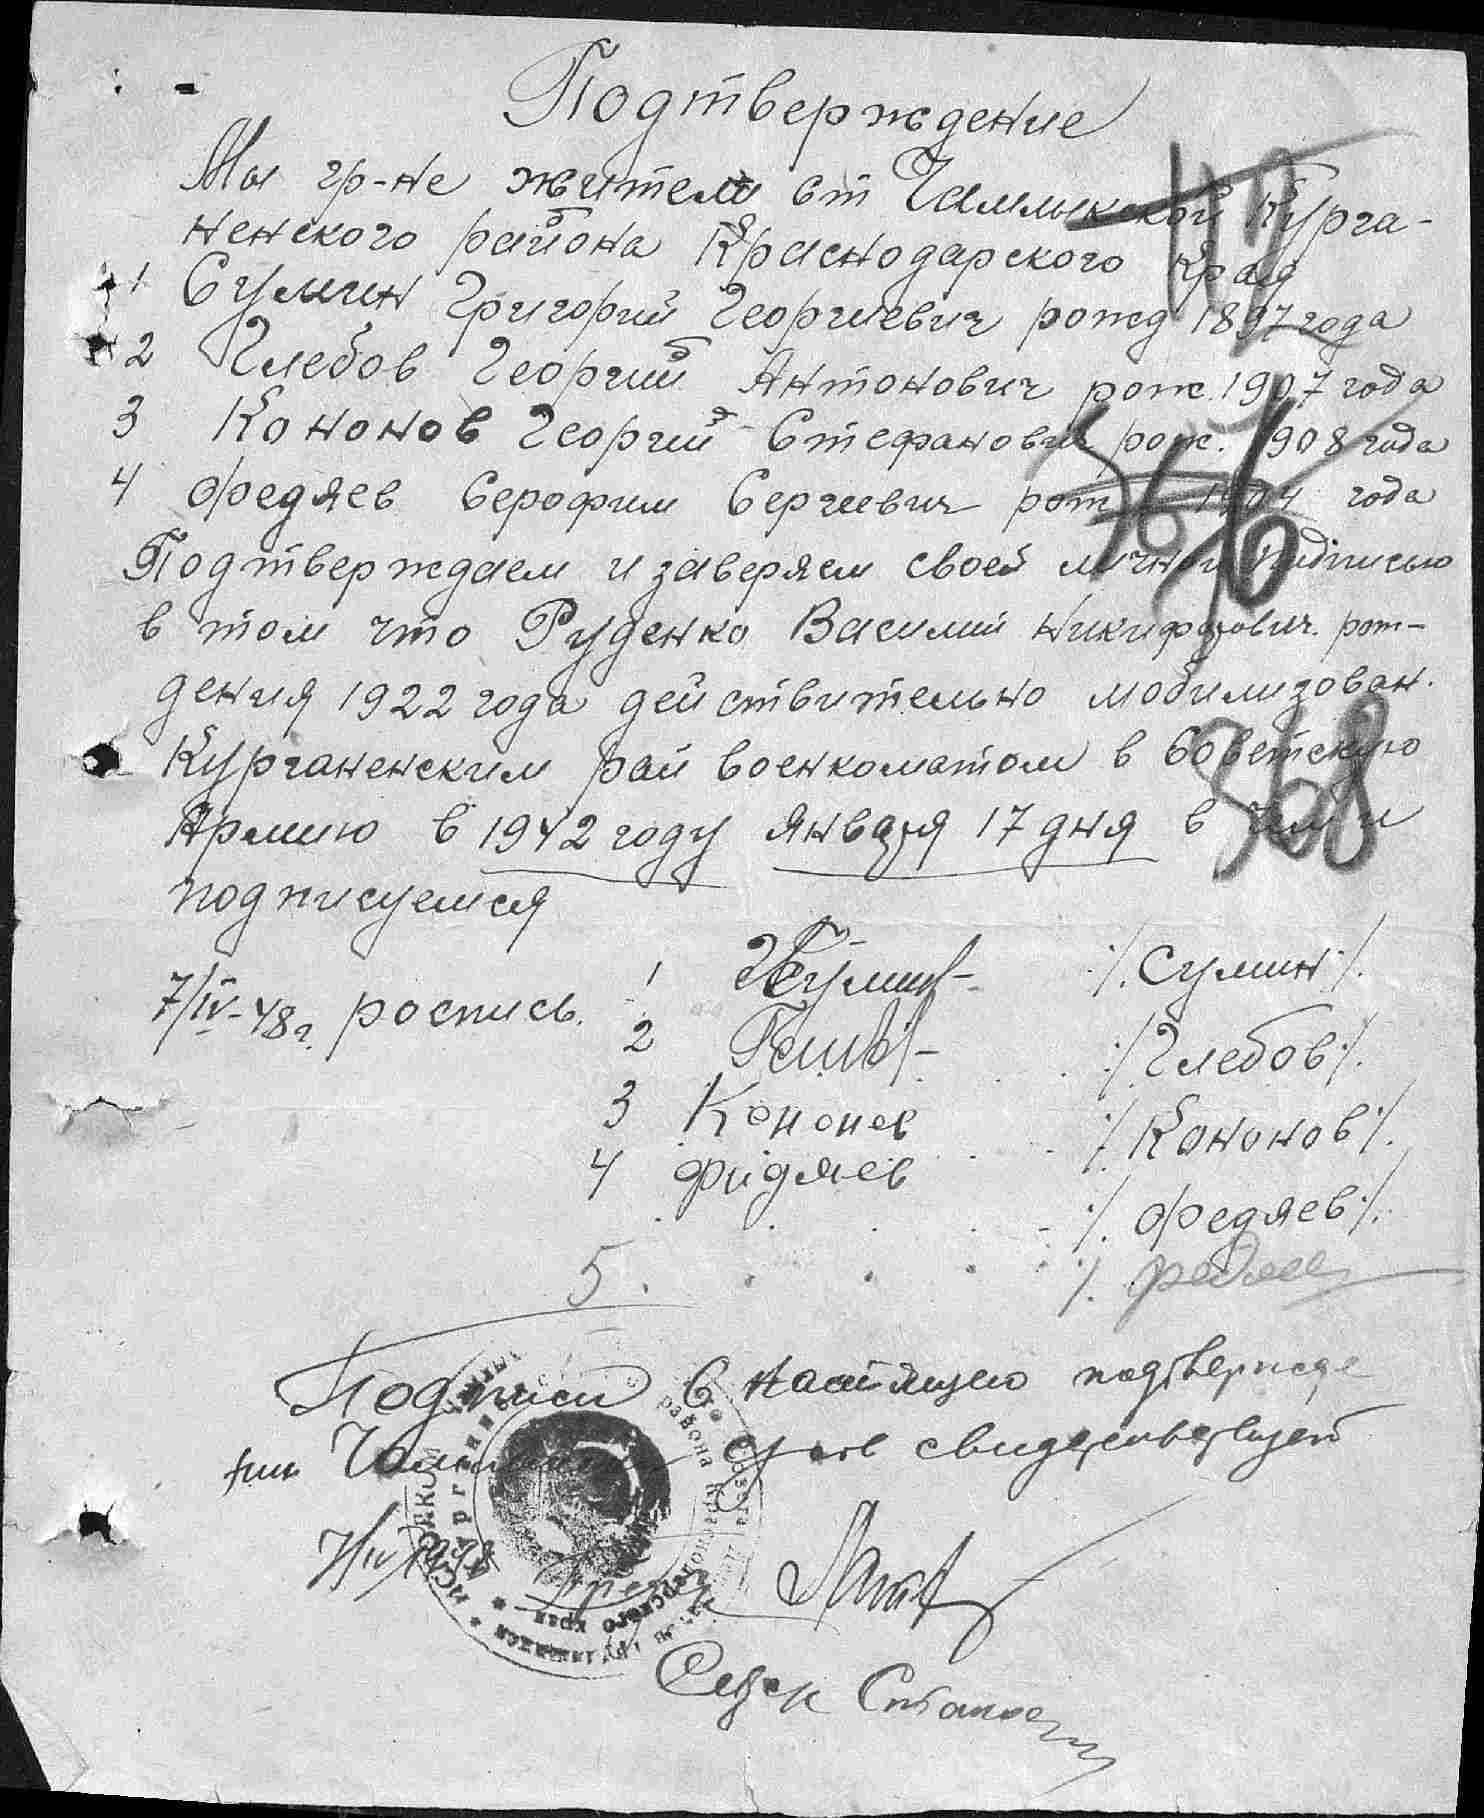 Подтверждение
Мы гр-не жители ст Чамлыкской Курга-
ненского района Краснодарского Края
1 Сумин Григорий Георгиевич рожд 1897 года
2 Глебов Георгий Антонович рож. 1907 года
3 Кононов Георгий Стефанович рож. 1908 года
4 Федяев Серофим Сергеевич рож 1904 года
Подтверждаем и заверяем своей личной подписью
в том что Руденко Василий Никифорович рож-
дения 1922 года действительно мобилизован.
Курганенским рай военкоматом в Советскую
Армию в 1942 году января 17 дня в чем и
подписуемся
7/IV-48 г. роспись. 1 Сумин /.Сумин/.
2 /Глебов/.
3 Кононов /.Кононов/.
4 Фидяев /. Федяев/.
5.
Подписи в настоящею подтвержде
нии свидетельствует
368